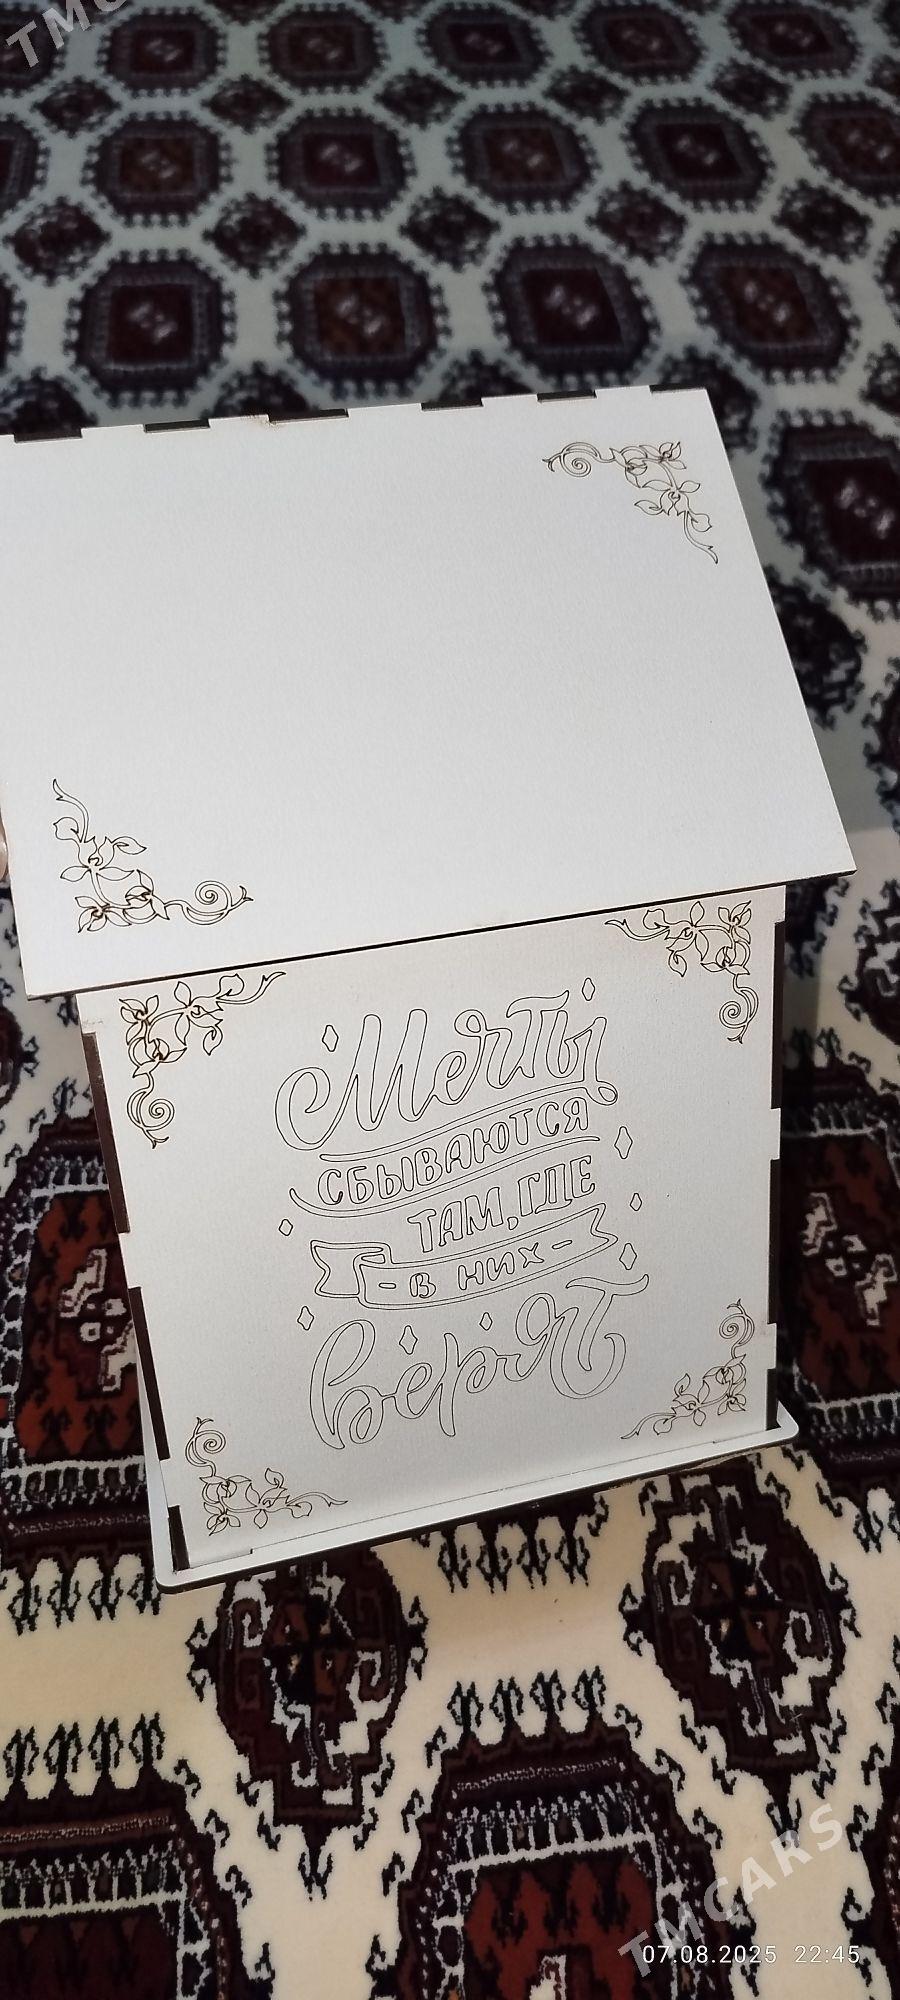 TMC
Мечты
СБЫВАЮТСЯ
ТАМ, ГДЕ
- В НИХ -
верят
TMCARS
07.08.2025 22:45